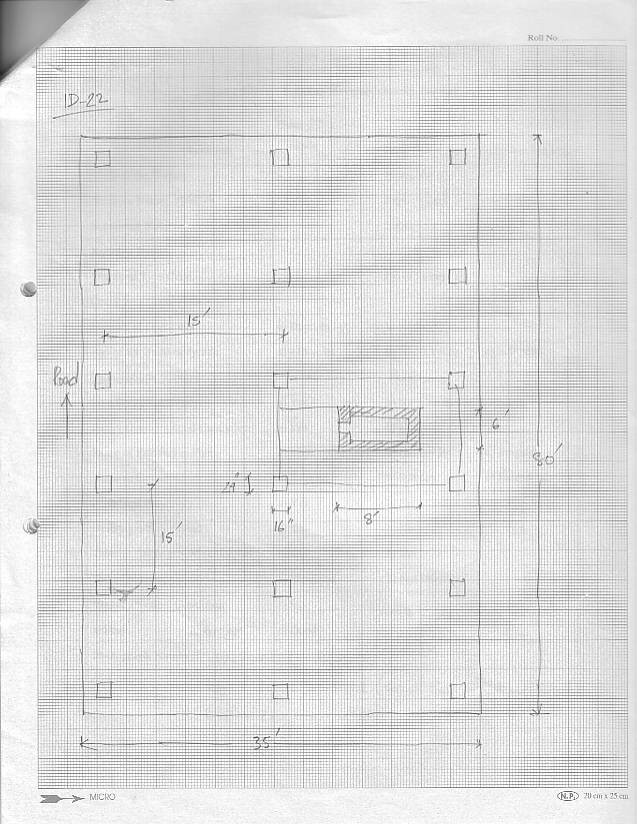 Roll No.
1D-22
15'
Road
6'
80'
24"
16"
8'
15'
35'
MICRO
N.P. 20 cm x 25 cm